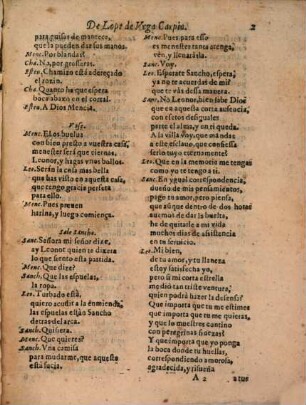 De Lope de Vega Carpio.
2
para guisos de manteca,
que la pueden dar sus manos.
Menc. Por blandas?
Cha. No, por grosseras.
Esteu. Chamizo està adoreçado
el rozino.
Cha. Quanto ha que espera
boca abaxo en el corral.
Esteu. A Dios Mencia.
Vase.
Menc. El os buelua
con bien presto a vuestra casa,
menester será que ciernas,
Leonor, y hagas vnos bollos.
Leo. Serán la cosa mas bella
que has visto en aquesta casa,
que tengo gracia perfeta
para ello.
Menc. Pues preuen
harina, y luego comiença.
Sale Sancho.
Sanch. Señora mi señor dize,
ay Leonor quien te dixera
lo que siento esta partida.
Menc. Que dize?
Sanch. Que las espuelas,
la ropa.
Leo. Turbado està,
quiero acusir a la enmienda,
las espuelas estàn Sancho
detras del arca.
Sanch. Quisiera.
Menc. Que quieres?
Sanch. Vna camisa
para mudarme, que aquesta
està sucia.
Menc. Pues para esso
es menester tanta arenga,
ven, y llenaràsla.
Sanc. Voy.
Leo. Esperate Sancho, espera,
ya no te acuerdas de mi?
que en esta corta ausencia,
con estos desiguales
parte el alma, y on ti queda.
A la villa voy, que mandà
a este esclauo, que confiessa
ser tuyo eternamente?
Leo. Que en la memoria me tengas
como yo te tengo a ti.
Sanc. En ygual correspondencia,
dueño de mis pensamientos,
pago tu amor, pero piensa,
que aunque dentro de dos horas
auemos de dar la buelta,
he de quitarle a mi vida
muchos dias de assistencia
en tu seruicio.
Leo. Mi bien,
de tu amor, y tu llaneza
estoy satisfecha yo,
pero si el alma me lleuas
en tan triste ventura,
quien podrà hazer la defensa?
Que importa que tu me estimes
que importa que te me quieras,
y que lo muestres contino
con peregrinas finezas?
Y que importa que yo ponga
la boca donde tu huellas,
correspondiendo amorosa,
agradecida, y risueña
A 2